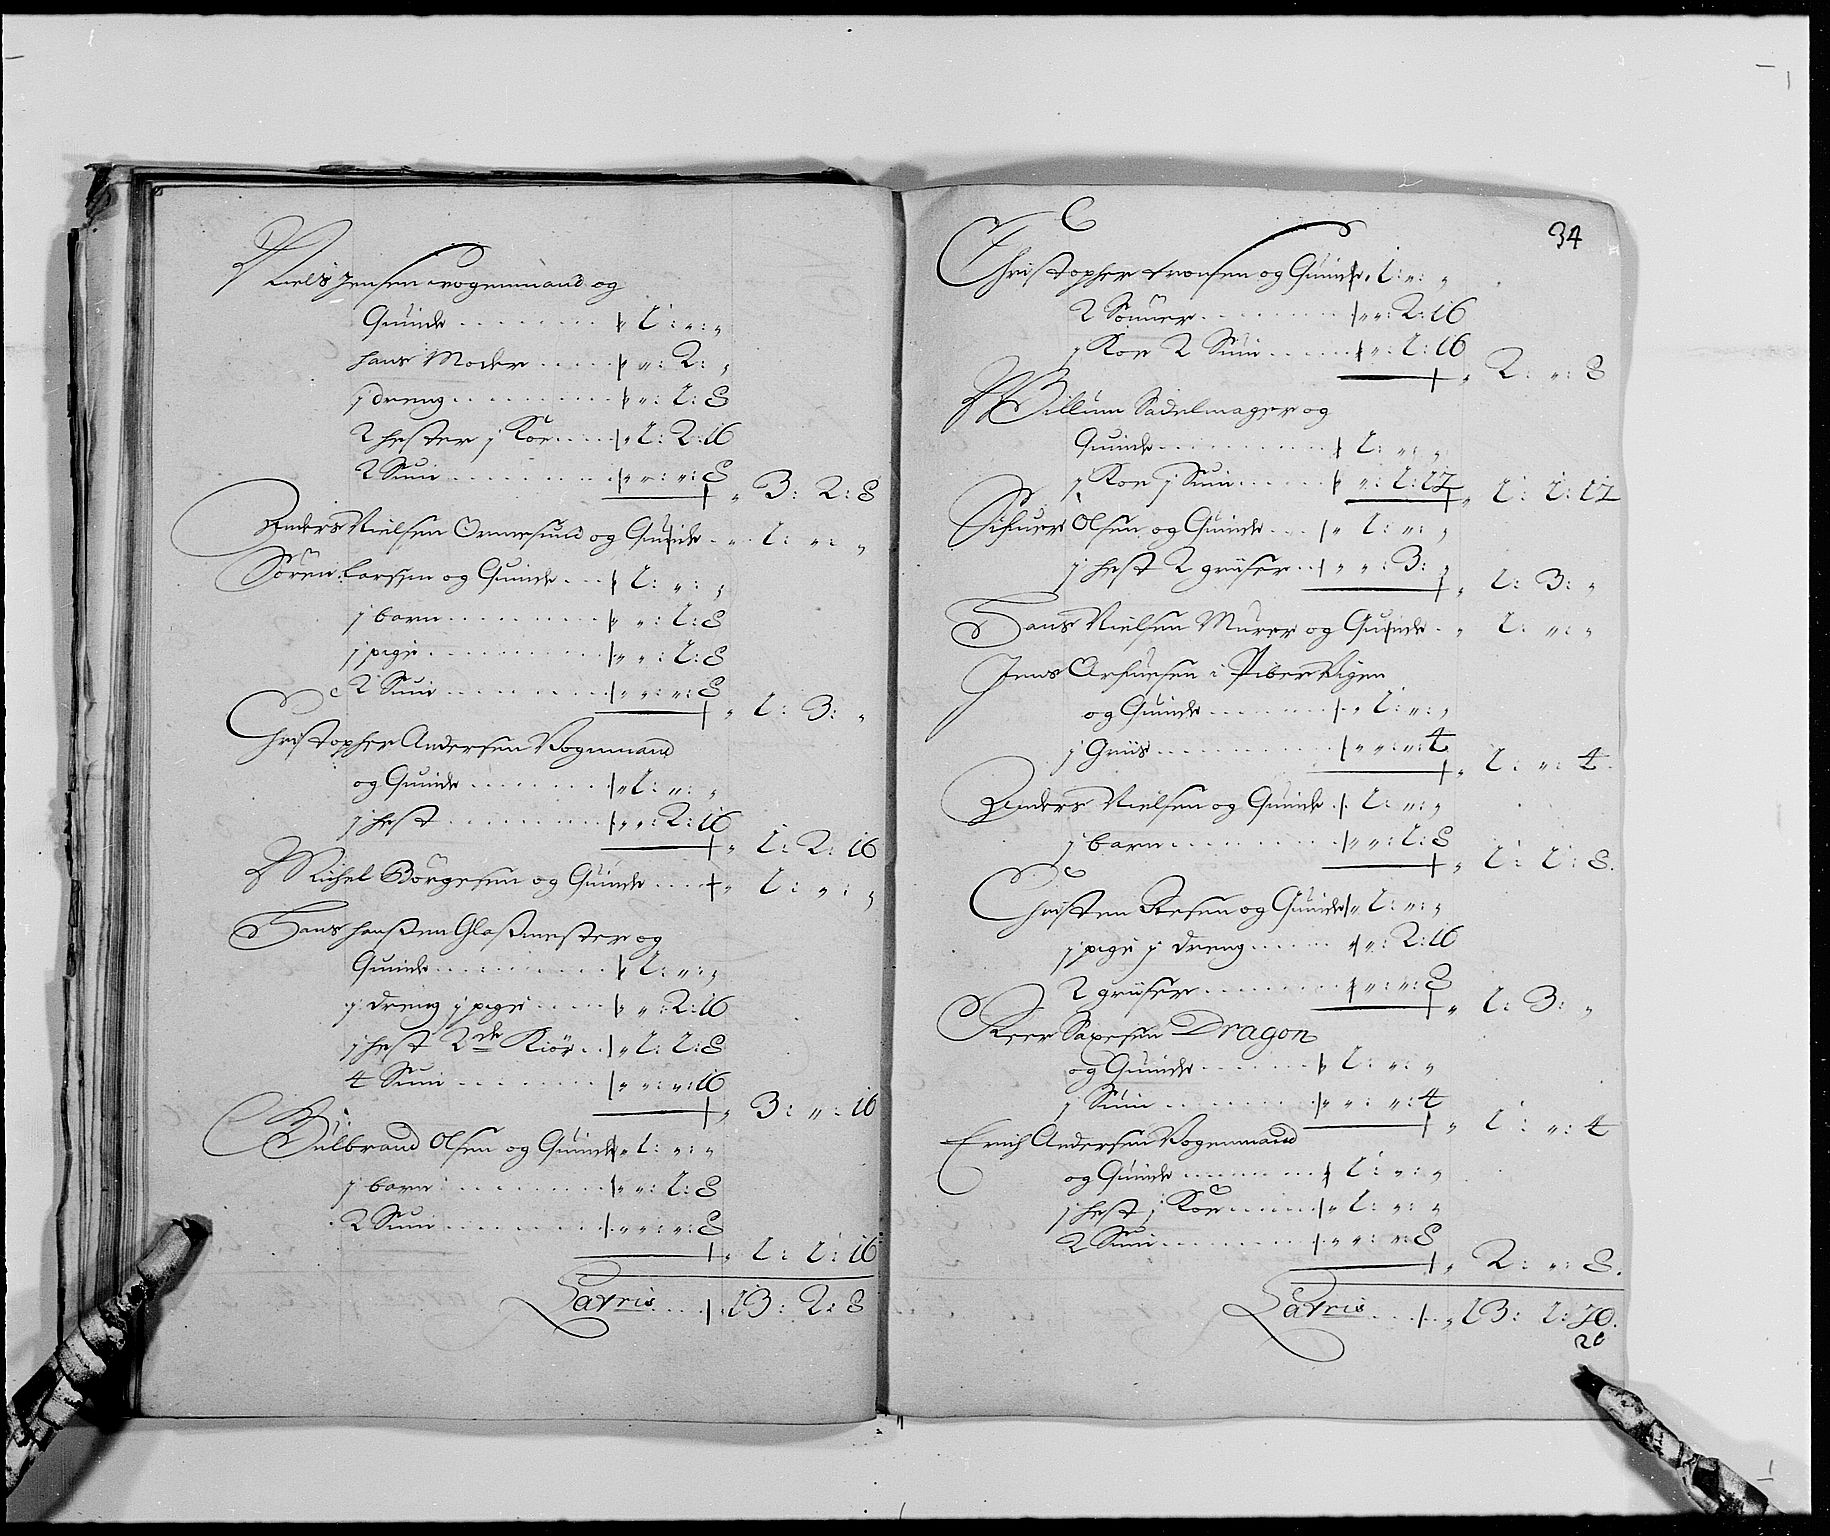 Niels Jensen Vogenmand og
Quinde . . . . . . . . 1: „: „
hans Moder . . . . . „: 2: „
j dreng . . . . . . . . „: 1: 8
2 hester j Koe . . . . 1: 2: 16
2 Suin . . . . . . . . „: „: 8
3: 2: 8
Anders Nielsen Ormesund og Quinde . . 1: „: „
Sören Larssen og Quinde . . . 1: „: „
j barn . . . . . . . . „: 1: 8
j pige . . . . . . . . „: 1: 8
2 Suin . . . . . . . . „: „: 8
1: 3: „
Christopher Andersen Vogenmand
og Quinde . . . . . . . 1: „: „
j hest . . . . . . . . „: 2: 16
1: 2: 16
Michel Börgesen og Quinde . . . . 1: „: „
Hans hanßen Glaßmester og
Quinde . . . . . . . . 1: „: „
j dreng j pige . . . . „: 2: 16
j hest 2de Kiör . . 1: 1: 8
4 Suin . . . . . . . „: „: 16
3: „: 16
Gulbrand Olsen og Quinde 1: „: „
j barn . . . . . . . . „: 1: 8
2 Suin . . . . . . . . „: „: 8
1: 1: 16
Latris . . . . 13: 2: 8
34
Christopher tronsen og Quinde 1: „: „
2 Sönner . . . . . . . „: 2: 16
j Koe 2 Suin . . . . . „: 1: 16
2: „: 8
Willum Sadelmager og
Quinde . . . . . . . . 1: „: „
j Koe j Suin . . . . . „: 1: 12
1: 1: 12
Sifuer Olsen og Quinde . . . 1: „: „
j hest 2 griiser . . „: 3: „
1: 3: „
Hans Nielsen Murer og Quinde . 1: „: „
Jens Arfuesen i Pibervigen
og Quinde . . . . . . . 1: „: „
j Griis . . . . . . . . „: „: 4
1: „: 4
Anders Nielsen og Quinde . 1: „: „
j barn . . . . . . . . „: 1: 8
1: 1: 8
Christen og Quinde 1: „: „
j pige j dreng . . . . . „: 2: 16
2 griiser . . . . . . . „: „: 8
1: 3: „
Peer Saxesen Dragon
og Quinde . . . . . . . 1: „: „
j Suin . . . . . . . . „: „: 4
1: „: 4
Erich Andersen Vogenmand
og Quinde . . . . . . . 1: „: „
j hest j Koe . . . . . 1: „: „
2 Suin . . . . . . . . „: „: 8
2: „: 8
Latris . . . . 13: 1: 20
20